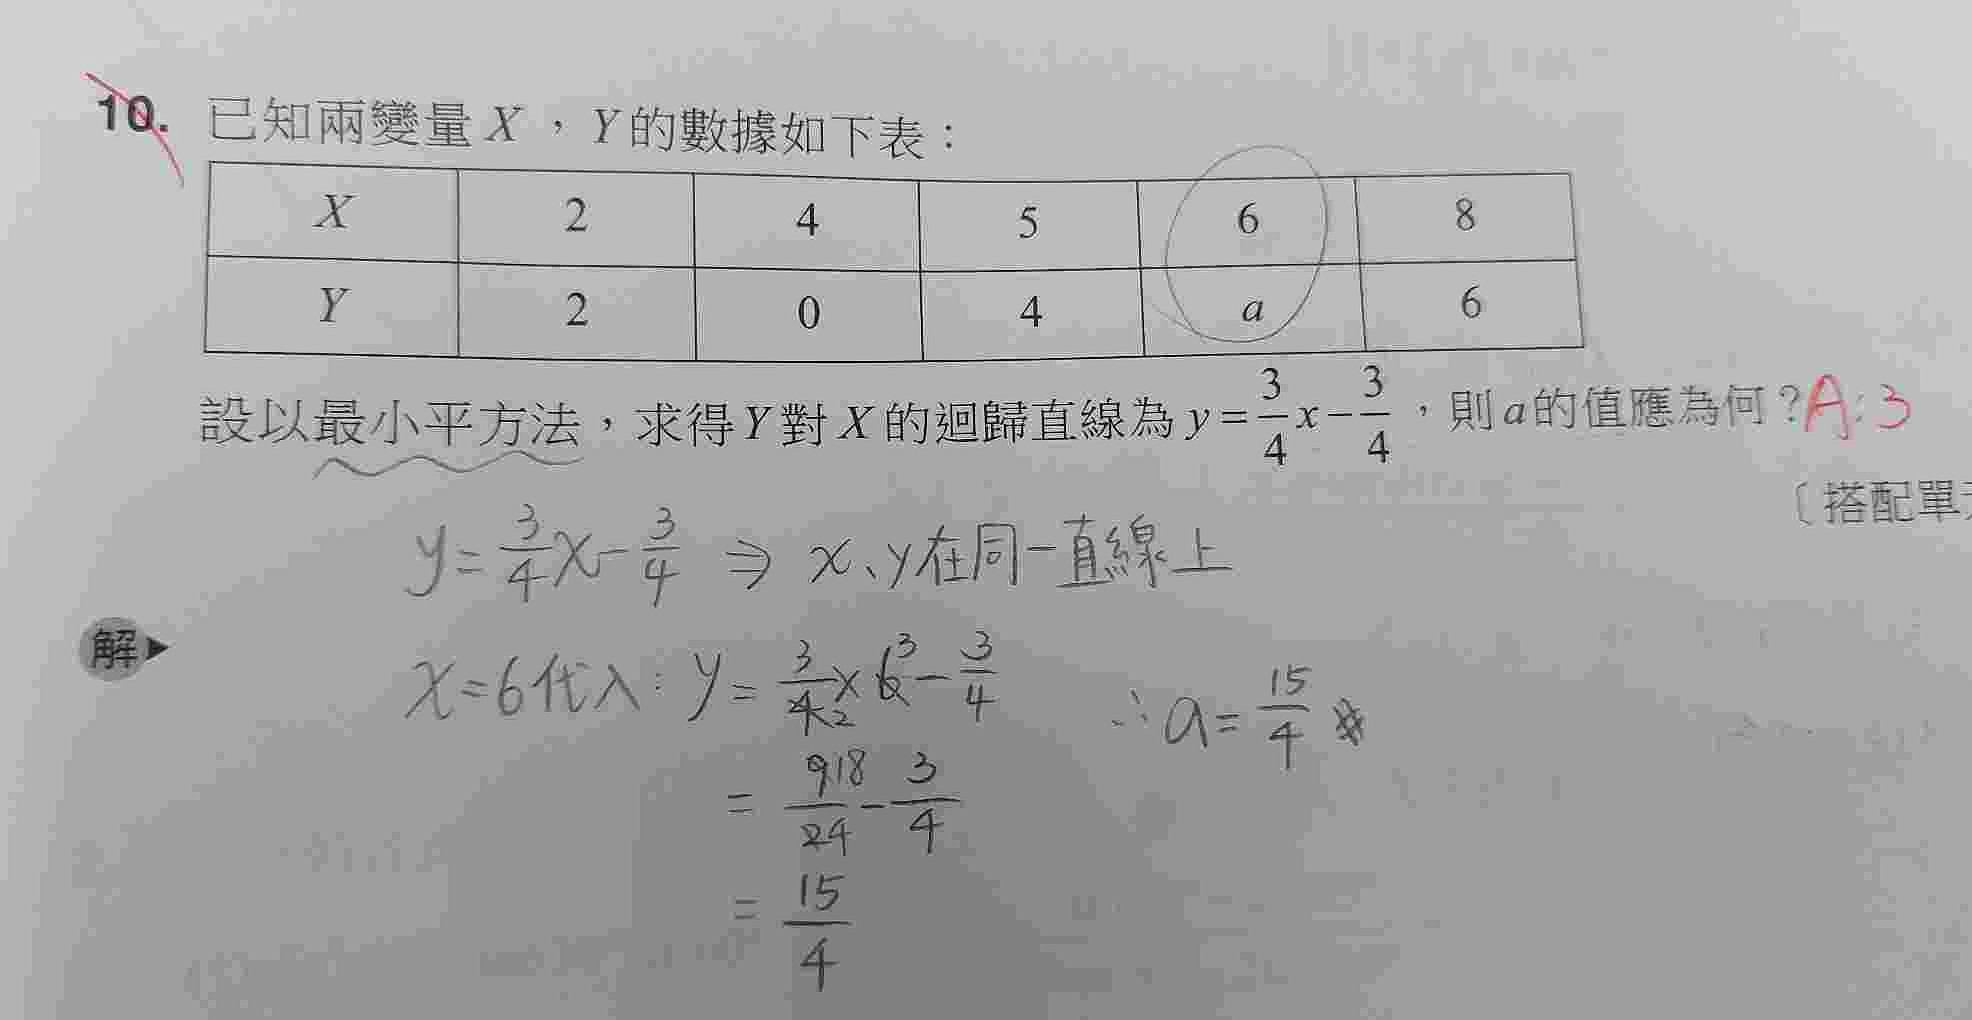 10. 已知兩變量 X，Y的數據如下表：
X 2 4 5 6 8
Y 2 0 4 a 6
設以最小平方法，求得Y對X的迴歸直線為 y=3/4x-3/4，則a的值應為何？A:3
〔搭配單
y=3/4x-3/4 ⇒ x、y在同一直線上
解▶
x=6代入: y=3/4 2×6 3-3/4
∴a=15/4 #
=918/24-3/4
=15/4